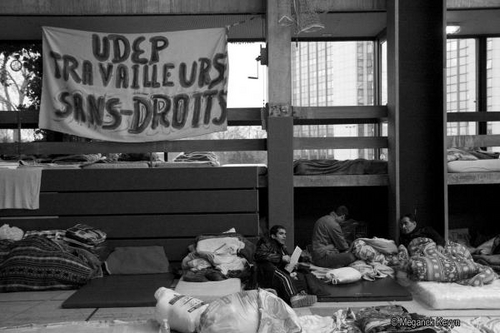 UDEP
TRAVAILLEURS
SANS-DROITS
© Meganck Kevyn